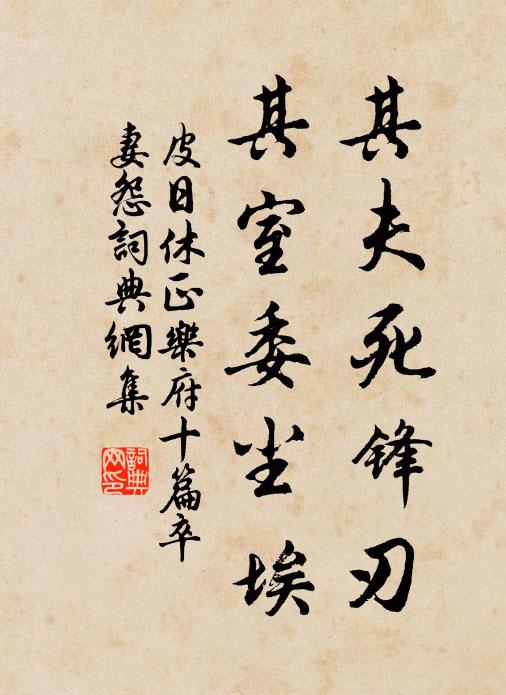 其夫死锋刃
其室委尘埃
皮日休正樂府十篇卒
妻怨詞典網集
詞典网印